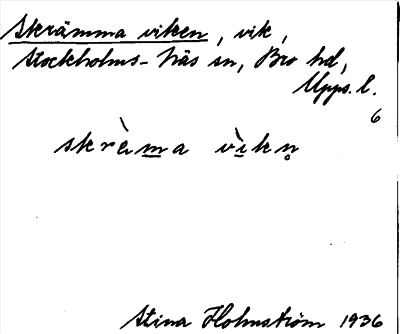 Skrämma viken, vik,
Stockholms-Näs sn, Bro hd,
Upps. l.
6
skrὲm̲a vì̲kn̥
Stina Holmström 1936